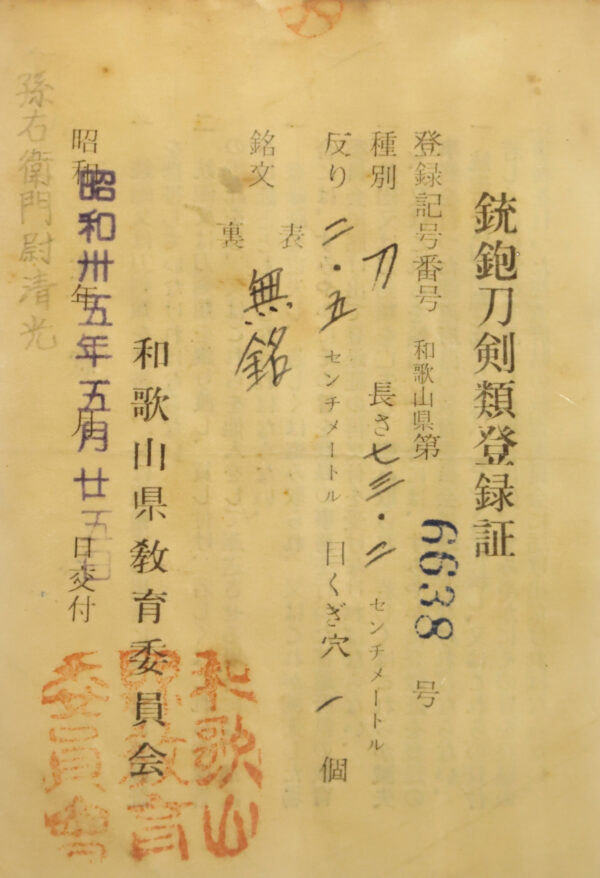 銃砲刀剣類登録証
登録記号番号 和歌山県第 6638 号
種別 刀 長さ 七三・二 センチメートル
反り 二・五 センチメートル 目くぎ穴 1 個
銘文 表 無銘
裏
和歌山県教育委員会
昭和 年 月 日交付
昭和卅五年五月廿五日
孫右衛門尉清光
和歌山
県教育
委員會